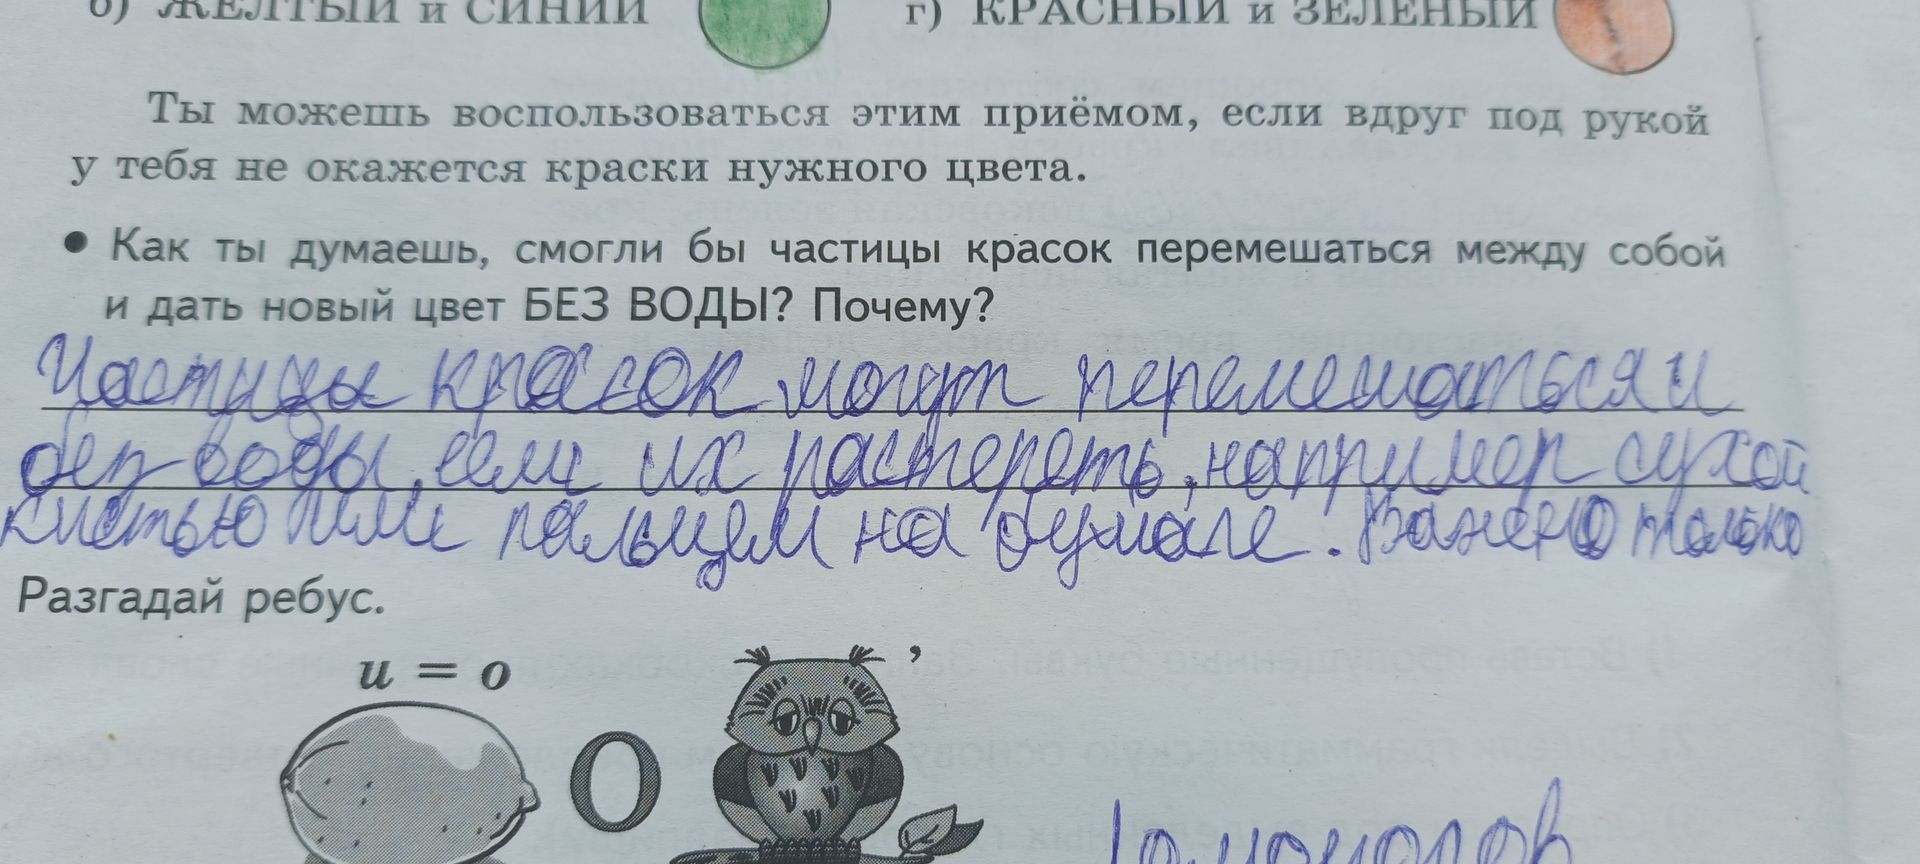 б) ЖЁЛТЫЙ и СИНИЙ г) КРАСНЫЙ и ЗЕЛЁНЫЙ
Ты можешь воспользоваться этим приёмом, если вдруг под рукой
у тебя не окажется краски нужного цвета.
• Как ты думаешь, смогли бы частицы красок перемешаться между собой
и дать новый цвет БЕЗ ВОДЫ? Почему?
Частицы красок могут перемешаться и
без воды, если их растереть, например сухой
кистью или пальцем на бумаге. Важено только
Разгадай ребус.
и = о
О ,
Ломоносов